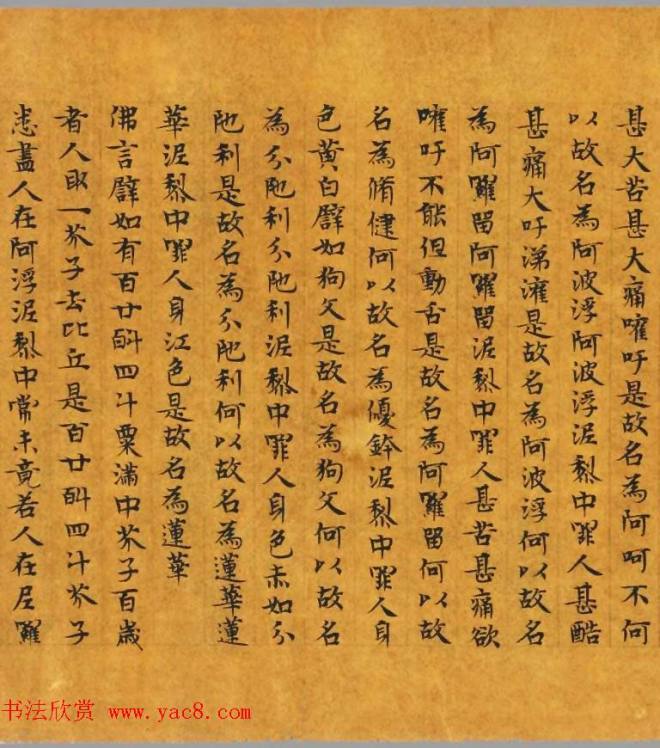 甚大苦甚大痛嚾吁是故名為阿呵不何
以故名為阿波浮阿波浮泥犁中罪人甚酷
甚痛大吁涕是故名為阿波浮何以故名
為阿羅留阿羅留泥犁中罪人甚苦甚痛欲
嚾吁不能但動舌是故名為阿羅留何以故
名為脩健何以故名為優鉢泥犁中罪人身
色黃白譬如狗父是故名為狗父何以故名
為分陀利分陀利泥犁中罪人身色赤如分
陀利是故名為分陀利何以故名為蓮華蓮
華泥犁中罪人身江色是故名為蓮華
佛言譬如有百廿斛四斗粟滿中芥子百歲
者人取一芥子去比丘是百廿斛四斗芥子
悉盡人在阿浮泥犁中常未竟若人在尼羅
书法欣赏 www.yac8.com